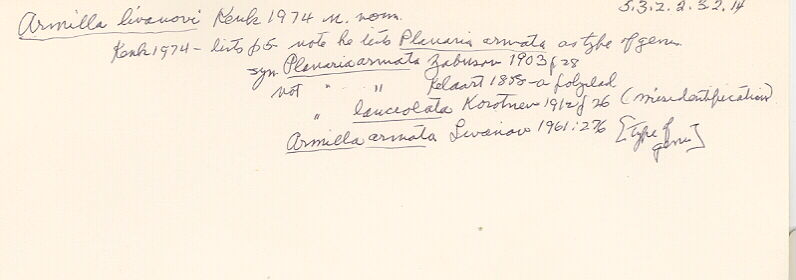 Armilla livanovi Kenk 1974 n. nom. 5.3.2.2.3.2.14
Kenk 1974 - lists p5 note he lists Planaria armata as type of genus
syn Planaria armata Zabusov 1903 p 28
not " " Kelaart 1858 - a polyclad
" lanceolata Korotnev 1912 p 26 (misidentification)
Armilla armata Livanov 1961: 276 [type of
genus]